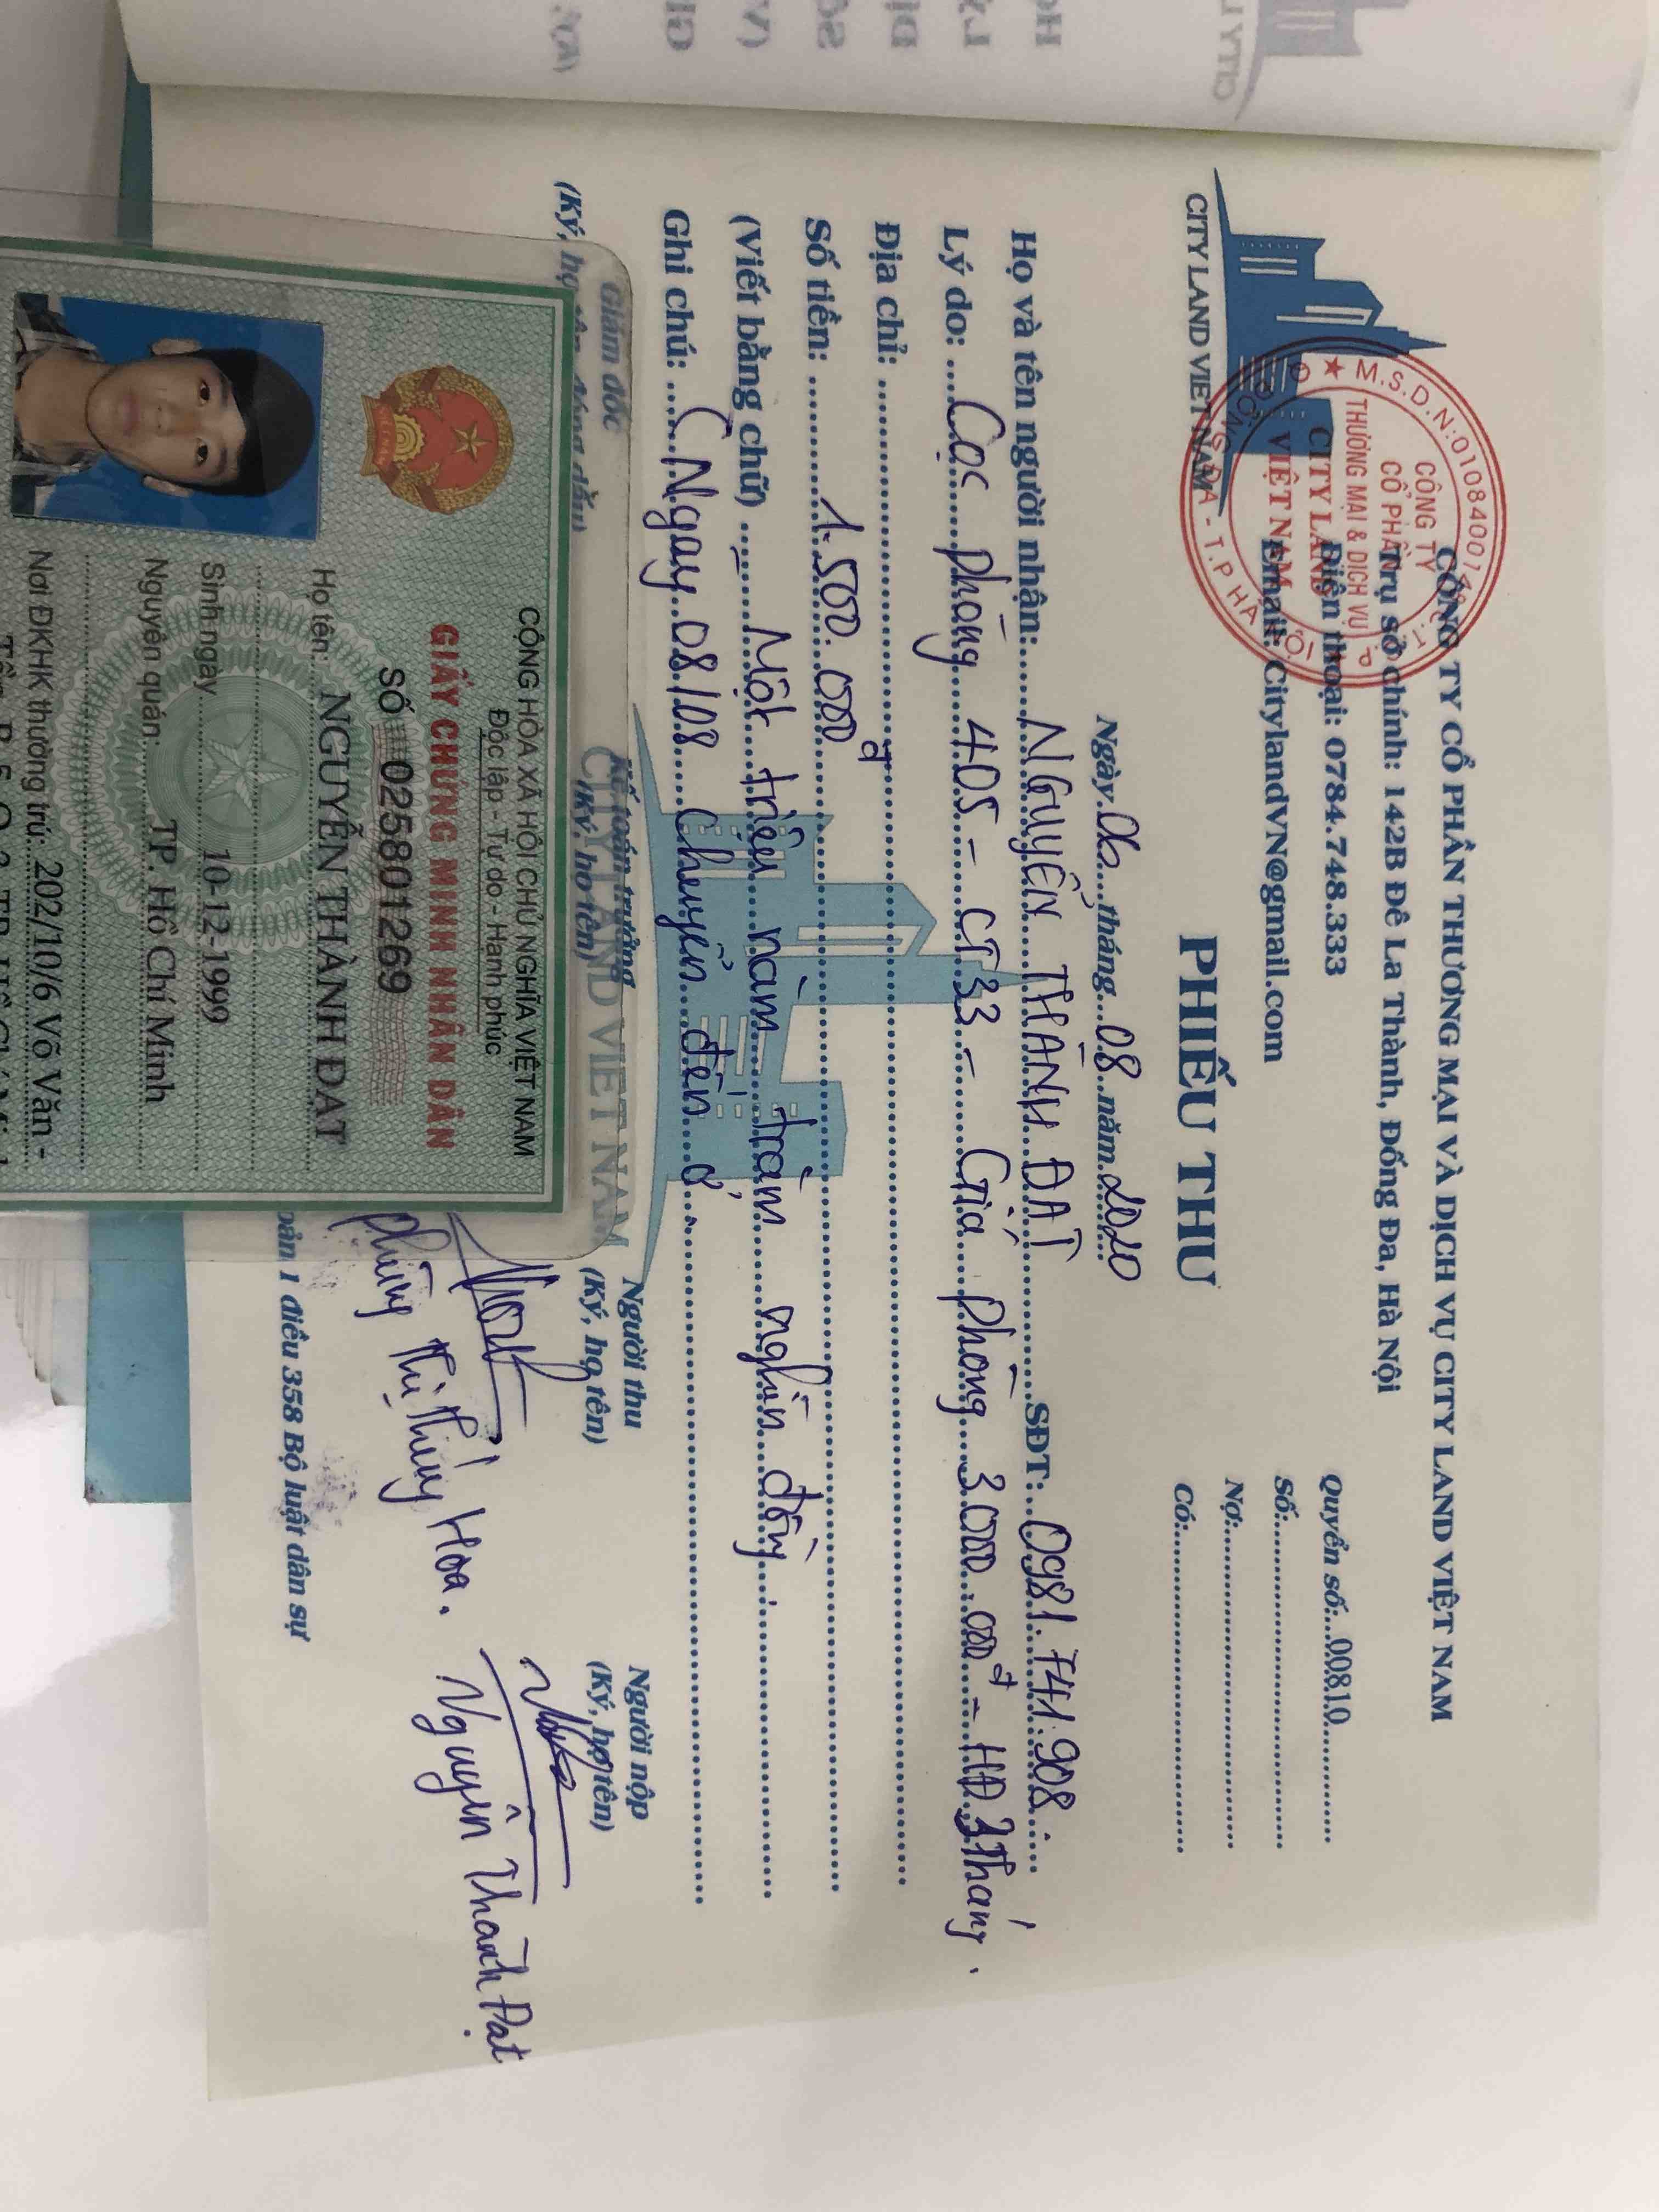 CITY LAND VIET NAM
CÔNG TY CỔ PHẦN THƯƠNG MẠI VÀ DỊCH VỤ CITY LAND VIỆT NAM
Trụ sở chính: 142B Đê La Thành, Đống Đa, Hà Nội
Điện thoại: 0784.748.333
Email: CitylandVN@gmail.com
★ M.S.D.N:0108400174
CÔNG TY
CỔ PHẦN
THƯƠNG MẠI & DỊCH VỤ
CITY LAND
VIỆT NAM
Quyển số:...00810
Số:
Nợ:
Có:
PHIẾU THU
Ngày 06 tháng 08 năm 2020
Họ và tên người nhận: NGUYỄN THÀNH ĐẠT SĐT: 0981.741.908
Lý do: Cọc phòng 405 - CT33 - Giá phòng 3.000.000đ - HĐ 3 tháng.
Địa chỉ:
Số tiền: 1.500.000đ
(Viết bằng chữ) Một triệu năm trăm nghìn đồng.
Ghi chú: (Ngay 08/08 chuyển đến ở
Giám đốc
Kế toán trưởng
(Ký, họ tên)
CITY LAND VIET NAM
Người thu
(Ký, họ tên)
Người nộp
(Ký, họ tên)
Phùng Thị Thúy Hoa.
Nguyễn Thành Đạt
điều 358 Bộ luật dân sự
CỘNG HÒA XÃ HỘI CHỦ NGHĨA VIỆT NAM
Độc lập - Tự do - Hạnh phúc
GIẤY CHỨNG MINH NHÂN DÂN
SỐ 025801269
Họ tên: NGUYỄN THÀNH ĐẠT
Sinh ngày 10-12-1999
Nguyên quán: TP. Hồ Chí Minh
Nơi ĐKHK thường trú: 202/10/6 Võ Văn -